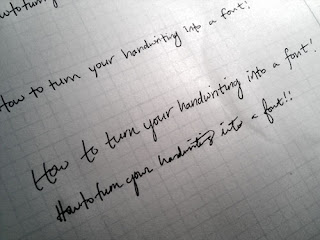 How to turn your handwriting into a font!
How to turn your handwriting into a font!
How to turn your handwriting into a font!!